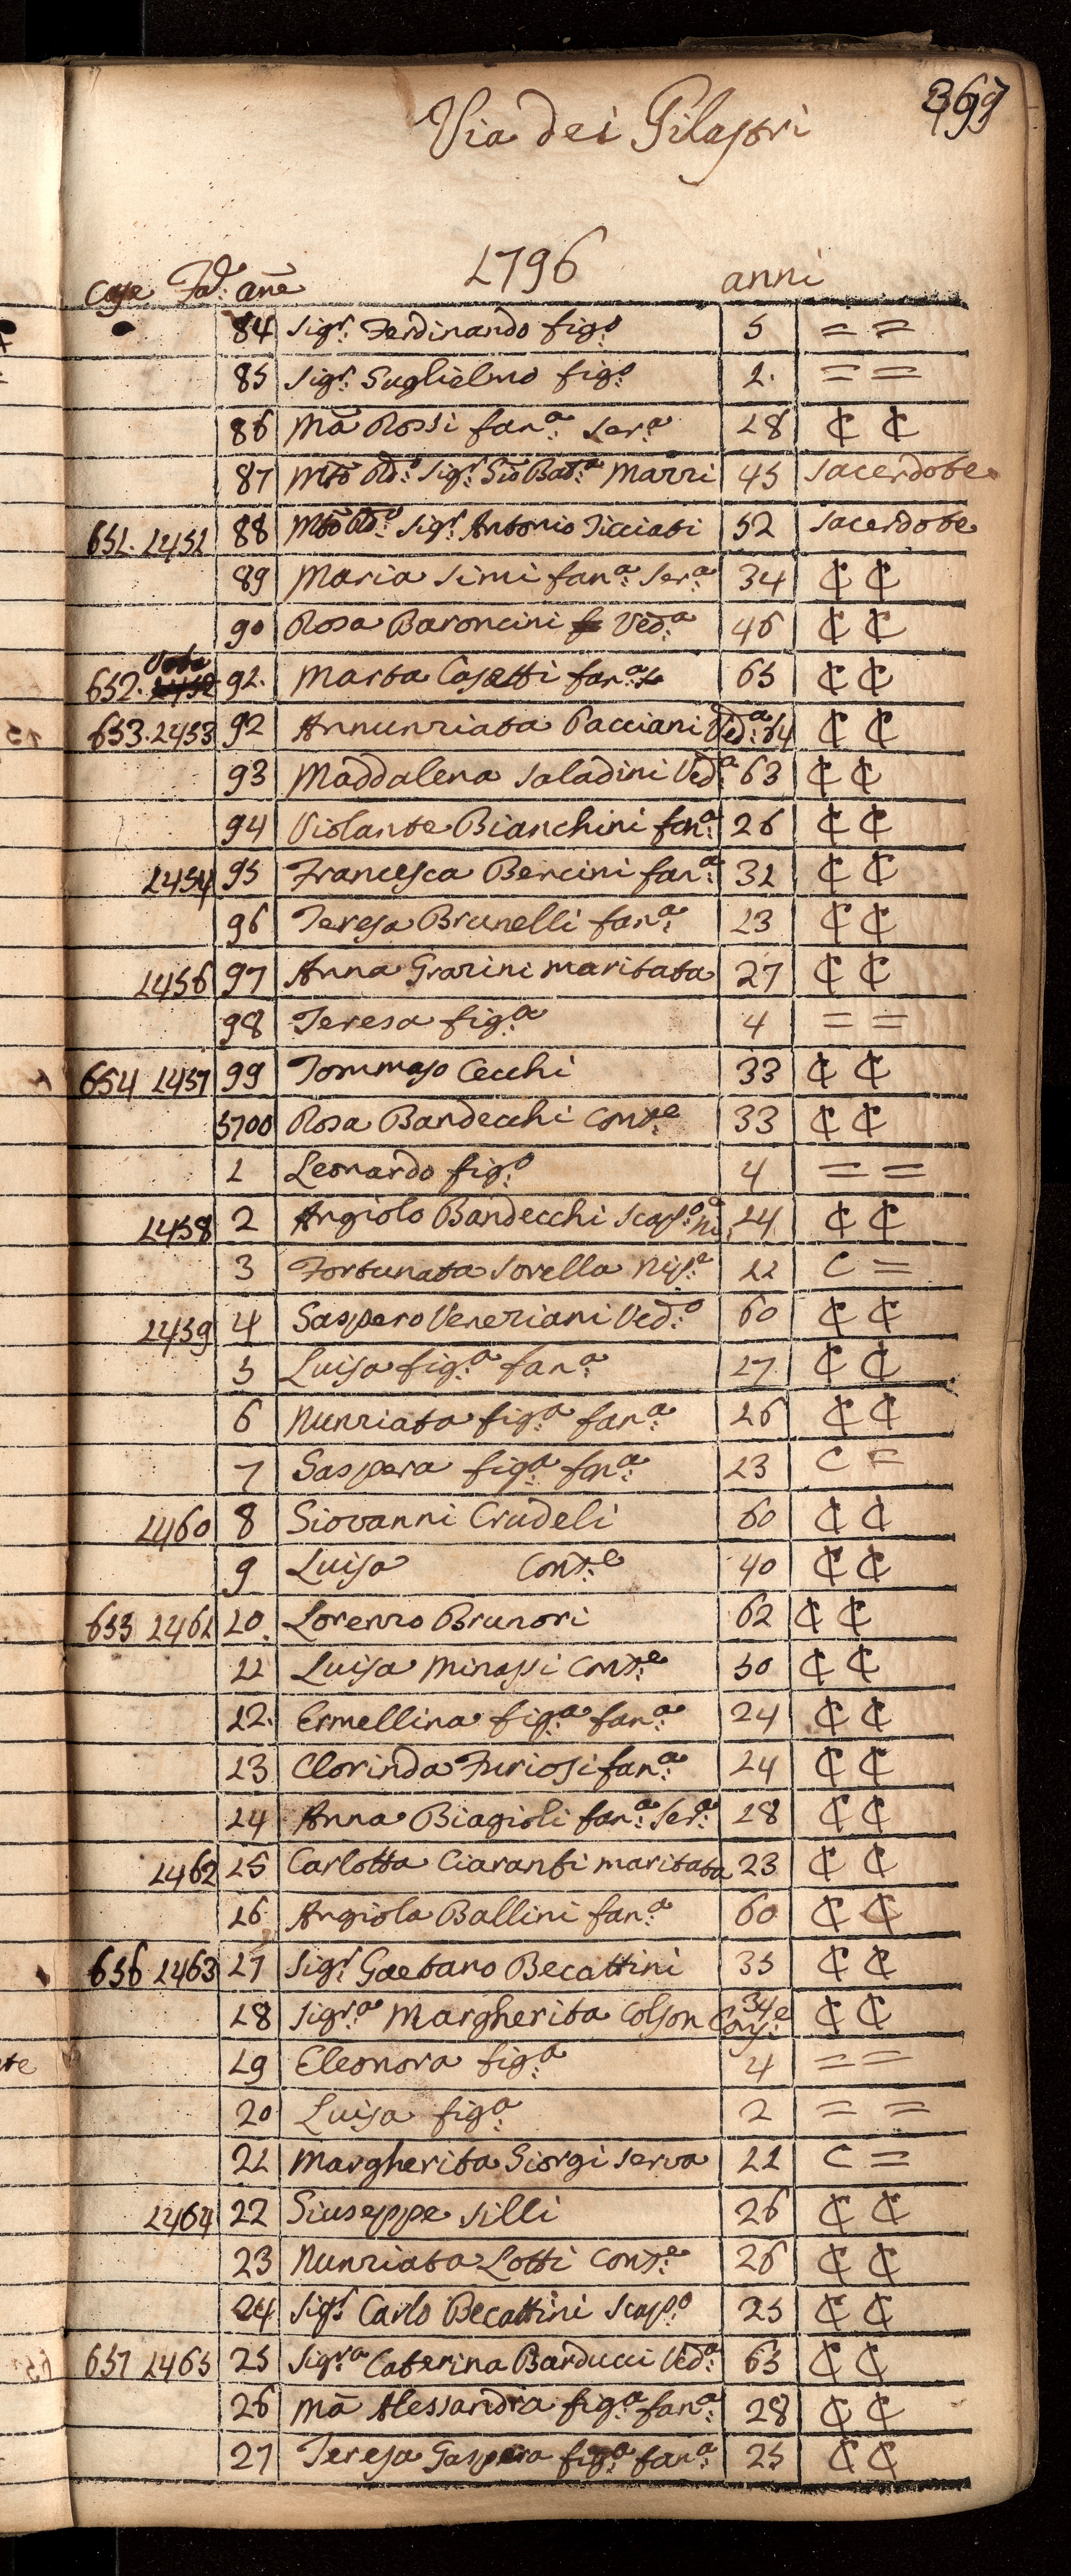 Via dei Pilastri
1796
case Fa. anē anni
84 Sigr. Ferdinando figo. 5 = =
85 Sigr. Guglielmo figo. 2. = =
86 Mā Rossi fana. Sera. 28 ₵ ₵
87 Mto Rdo. Sigr. Gio Bata. Marri 45 Sacerdote
651. 1451 88 Mto Rdo. Sigr. Antonio Ticciati 52 Sacerdote
89 Maria Simi fana. Sera. 34 ₵ ₵
90 Rosa Baroncini Veda. 46 ₵ ₵
652. Vota 91. Marta Casetti fana. 65 ₵ ₵
653. 1453 92 Annunziata Pacciani Veda. 64 ₵ ₵
93 Maddalena Saladini Veda. 63 ₵ ₵
94 Violante Bianchini fana. 26 ₵ ₵
1454 95 Francesca Bencini fana. 31 ₵ ₵
96 Teresa Brunelli fana. 23 ₵ ₵
1456 97 Anna Grazini maritata 27 ₵ ₵
98 Teresa figa. 4 = =
654 1457 99 Tommaso Cecchi 33 ₵ ₵
5700 Rosa Bandecchi Conse. 33 ₵ ₵
1 Leonardo figo. 4 = =
1458 2 Angiolo Bandecchi Scapo. 14 ₵ ₵
3 Fortunata Sorella Nipe. 11 C =
1459 4 Gaspero Veneziani Vedo. 60 ₵ ₵
5 Luisa figa. fana. 17 ₵ ₵
6 Nunziata figa. fana. 16 ₵ ₵
7 Gaspera figa. fana. 13 C =
1460 8 Giovanni Crudeli 60 ₵ ₵
9 Luisa Conse. 40 ₵ ₵
655 1461 10. Lorenzo Brunori 62 ₵ ₵
11 Luisa Minassi Conse. 50 ₵ ₵
12. Ermellina figa. fana. 24 ₵ ₵
13 Clorinda Furiosi fana. 24 ₵ ₵
14 Anna Biagioli fana. Sera. 28 ₵ ₵
1462 15 Carlotta Ciaranfi maritata 23 ₵ ₵
16 Angiola Ballini fana. 60 ₵ ₵
656 1463 17 Sigr. Gaetano Becattini 35 ₵ ₵
18 Sigra. Margherita Colson Conse. 34 ₵ ₵
19 Eleonora figa. 4 = =
20 Luisa figa. 2 = =
21 Margherita Giorgi serva 11 C =
1464 22 Giuseppe Silli 26 ₵ ₵
23 Nunziata Lotti Conse. 26 ₵ ₵
24 Sigr. Carlo Becattini Scapo. 25 ₵ ₵
657 1465 25 Sigra. Caterina Barducci Veda. 65 ₵ ₵
26 Mā Alessandra figa. fana. 28 ₵ ₵
27 Teresa Gaspera figa. fana. 25 ₵ ₵